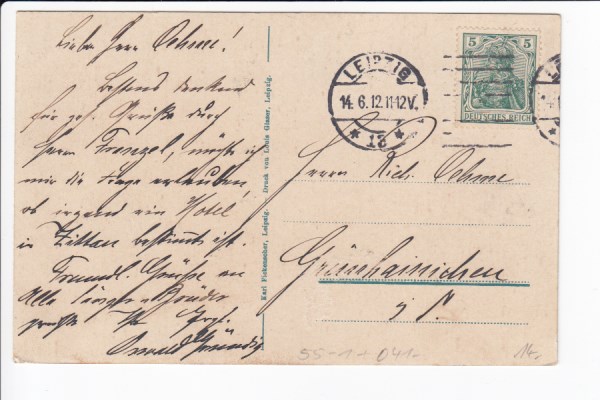 Lieber Herr Oehme!
Bestens dankend
für gef. Grüße durch
Herrn Frenzel, möchte ich
mir die Frage erlauben,
ob irgend ein Hotel
in Zittau bestimmt ist.
Freundl. Grüsse an
Alle
Oswald
Karl Fickenscher, Leipzig. Druck von Louis Glaser, Leipzig.
LEIPZIG
14.6.12.11-12V.
* 13 *
5 5
DEUTSCHES REICH
Herrn Rich. Oehme
Grünhainichen
i/S.
55-1-041-
14,-